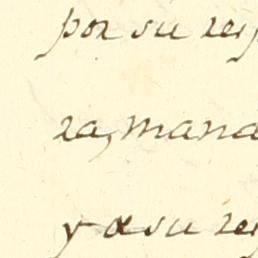 por su res
ra, mand
y a su res